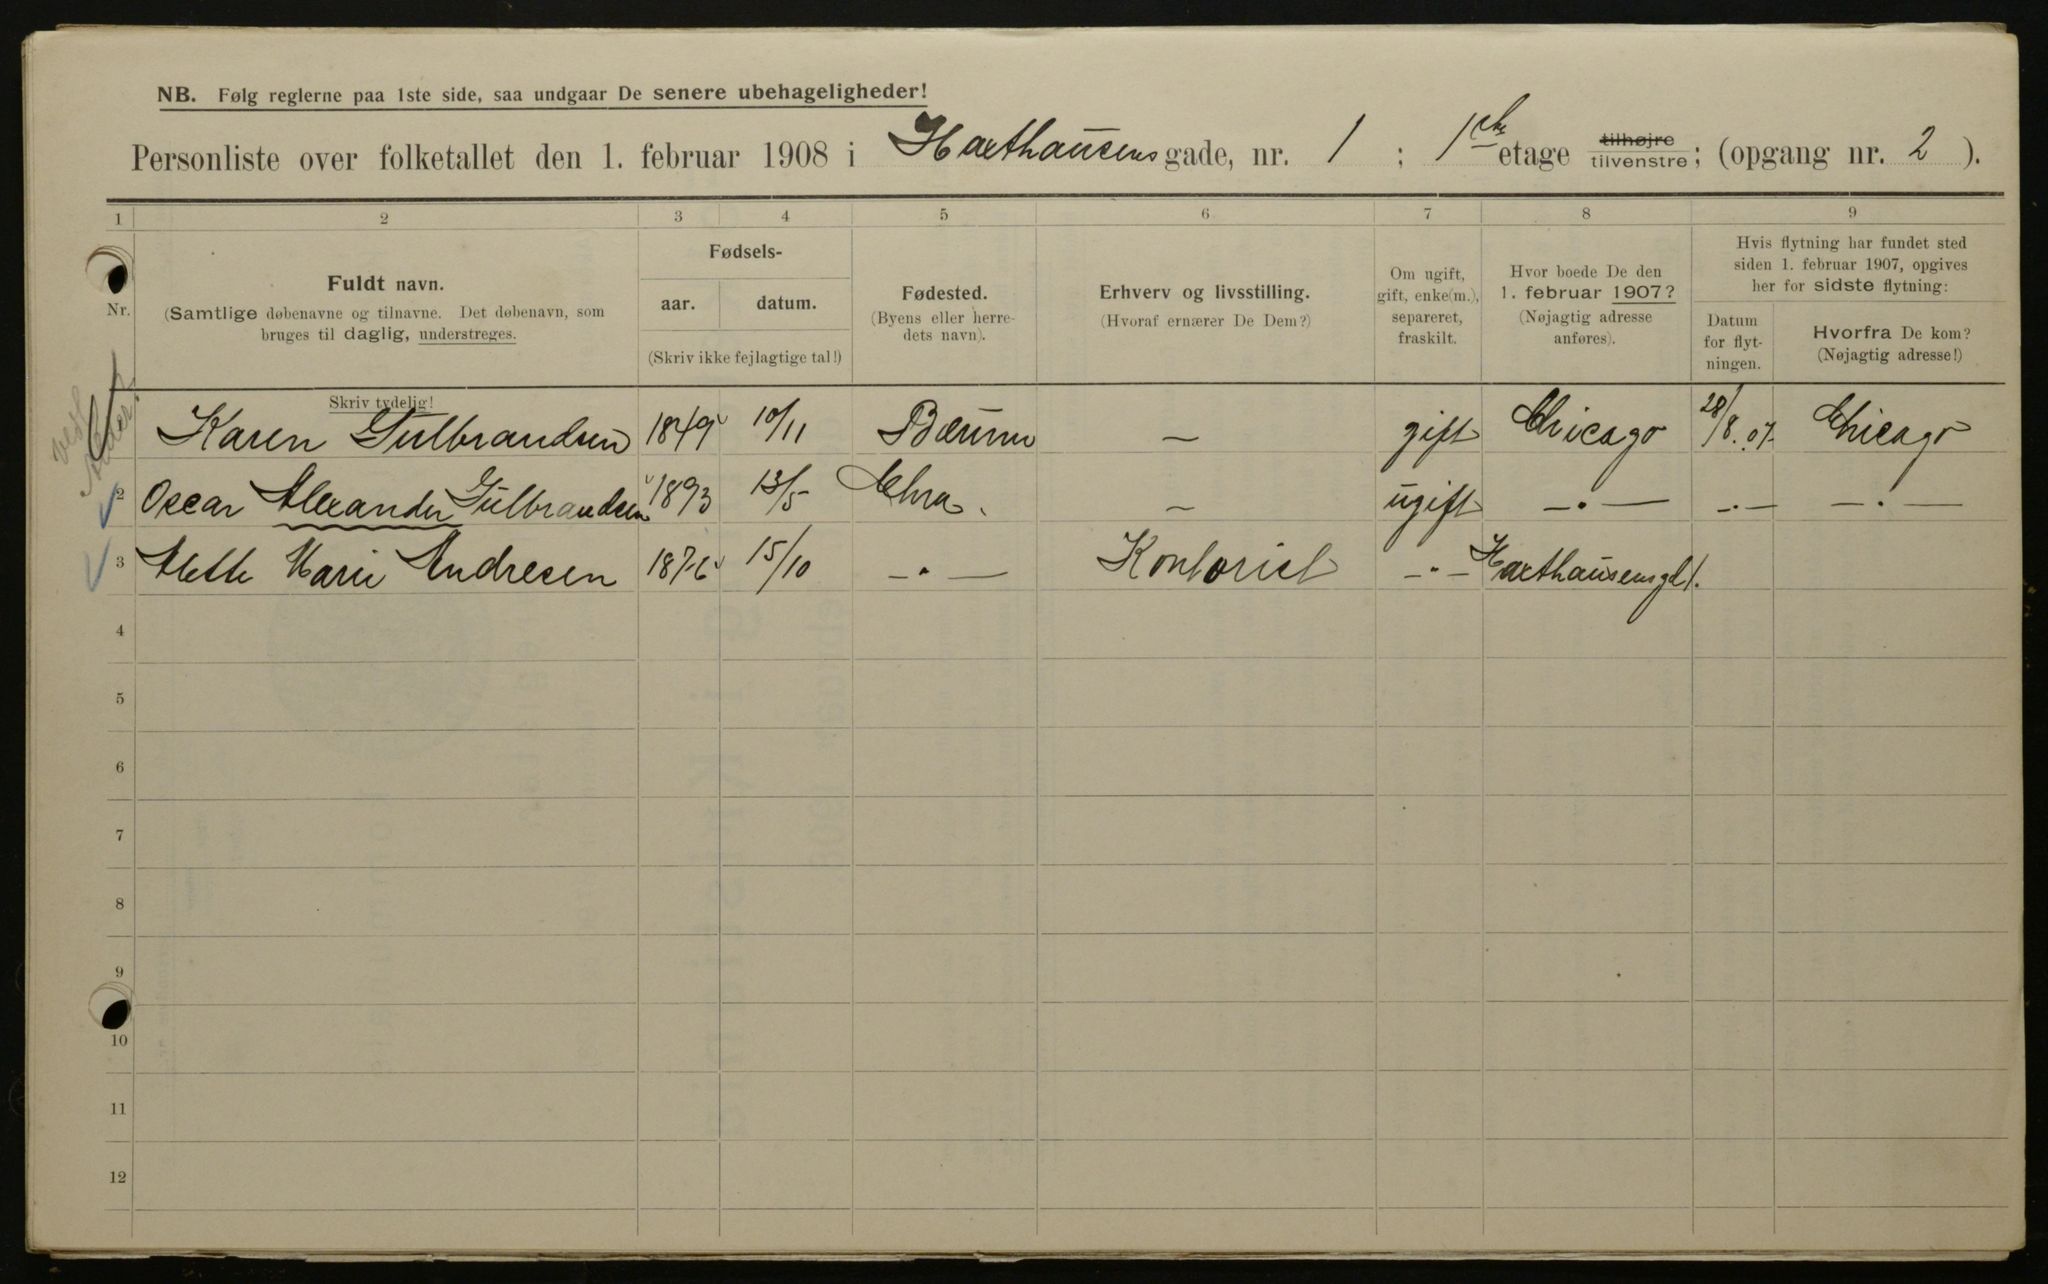 NB. Følg reglerne paa 1ste side, saa undgaar De senere ubehageligheder!
Personliste over folketallet den 1. februar 1908 i Haxthausens gade, nr. 1 ; 1ste etage tilhøjre tilvenstre; (opgang nr. 2 ).
1 2 3 4 5 6 7 8 9
Nr.
Fuldt navn.
(Samtlige døbenavne og tilnavne. Det døbenavn, som
bruges til daglig, understreges.
Skriv tydelig!
Fødsels-
aar. datum.
(Skriv ikke fejlagtige tal!)
Fødested.
(Byens eller herre-
dets navn).
Erhverv og livsstilling.
(Hvoraf ernærer De Dem?)
Om ugift,
gift, enke(m.),
separeret,
fraskilt.
Hvor boede De den
1. februar 1907?
(Nøjagtig adresse
anføres).
Hvis flytning har fundet sted
siden 1. februar 1907, opgives
her for sidste flytning:
Datum
for flyt-
ningen.
Hvorfra De kom?
(Nøjagtig adresse!)
Karen Gulbrandsen 1849 10/11 Bærum – gift Chicago 28/8.07. Chicago
2 Oscar Alexander Gulbrandsen 1893 13/5 Chra. – ugift —·— —·— —·—
3 Mette Marie Andresen 1876 15/10 —·— Kontorist —·— Haxthausensgd 1.
4
5
6
7
8
9
10
11
12